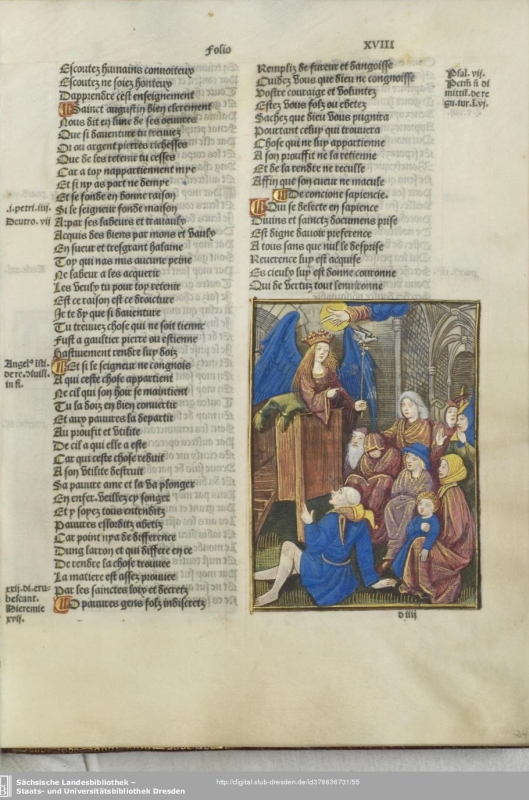 Folio
XVIII
Escoutez humains conuoiteux
Escoutez ne soiez honteux
Dapprendre cest enseignement
Sainct augustin bien clerement
Nous dit en lune de ses oeuures
Que si dauenture tu treuues
Or ou argent pierres richesses
Que de les retenir tu cesses
Car a toy nappartiennent mye
Et si ny as port ne demye
Et se fonde en bonne raison
.i.petri.iiii.
Si le seigneur fonde maison
Deutro. vii
A: par ses labeurs et trauaulx
Acquis des biens par mons et vaulx
En sueur et tresgrant halaine
Toy qui nas mis aucune peine
Ne labeur a les acquerir
Les veulx tu pour toy retenir
Est ce raison est ce droicture
Je te dy que si dauenture
Tu treuuez chose qui ne soit tienne
Fust a gaultier pierre ou estienne
Hastiuement rendre luy doiz
Et si le seigneur ne congnois
A qui ceste chose appartient
Ne cil qui son hoir se maintient
Tu la doiz en bien conuertir
Et aux pauures la departir
Au prouffit et vtilite
De cil a qui elle a este
Car qui ceste chose reduit
A son vtilite destruit
Sa pauure ame et la va plonger
En enfer. veillez cy songer
Et y soyez tous ententifz
Pauures
Car point nya de difference
Dung larron et qui differe en ce
De rendre la chose trouuee
La matiere est assez prouuee
Par les sainctes loix et decretz
O pauures gens folz indiscretz
Hieremie
xvii.
Rempliz de fureur et dangoisse
Cuidez vous que dieu ne congnoisse
Vostre couraige et voluntez
Estez vous folz ou
Sachez que dieu vous pugnira
Pourtant celuy qui trouuera
Chose qui ne luy appartienne
A son prouffit ne la retienne
Et de la rendre ne reculle
Affin que son cueur ne macule
De concione sapiencie.
Qui se delecte en sapience
Diuins et sainctz documens prise
Est digne dauoir preference
A tous sans que nul le desprise
Reuerence luy est acquise
Es cieulx luy est donne couronne
Qui de vertuz tout lenuironne
Psal. vij.
d iiij
Sächsische Landesbibliothek –
Staats- und Universitätsbibliothek Dresden
http://digital.slub-dresden.de/id378636731/55